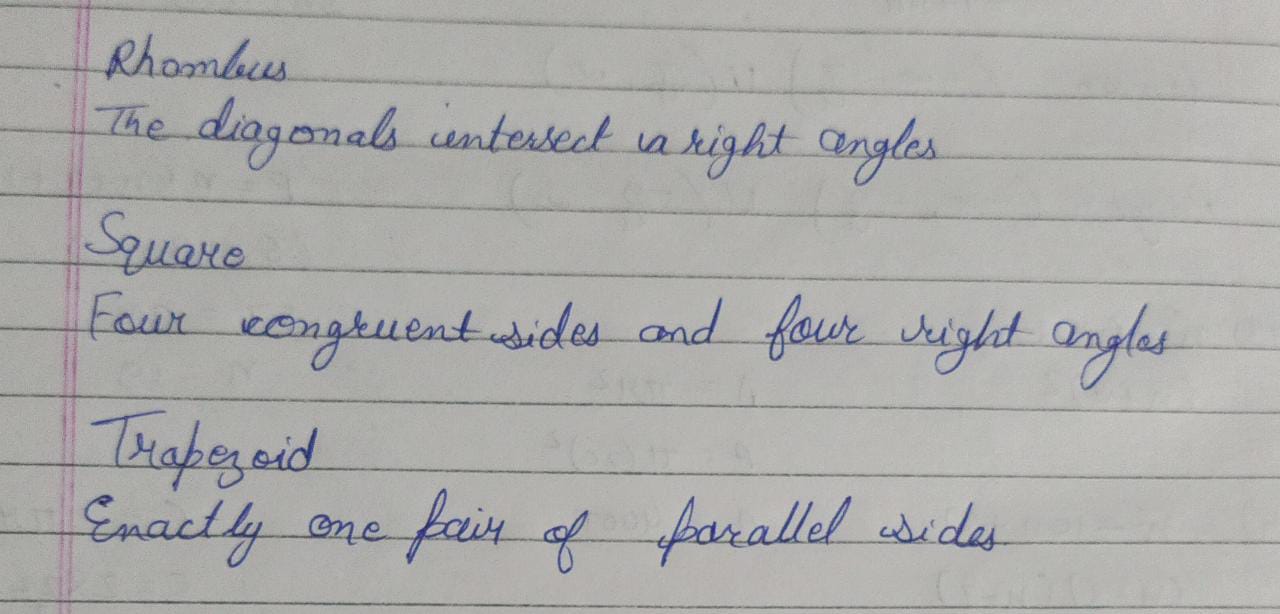 Rhombus
The diagonals intersect in right angles
Square
Four congruent sides and four right angles
Trapezoid
Exactly one pair of parallel sides